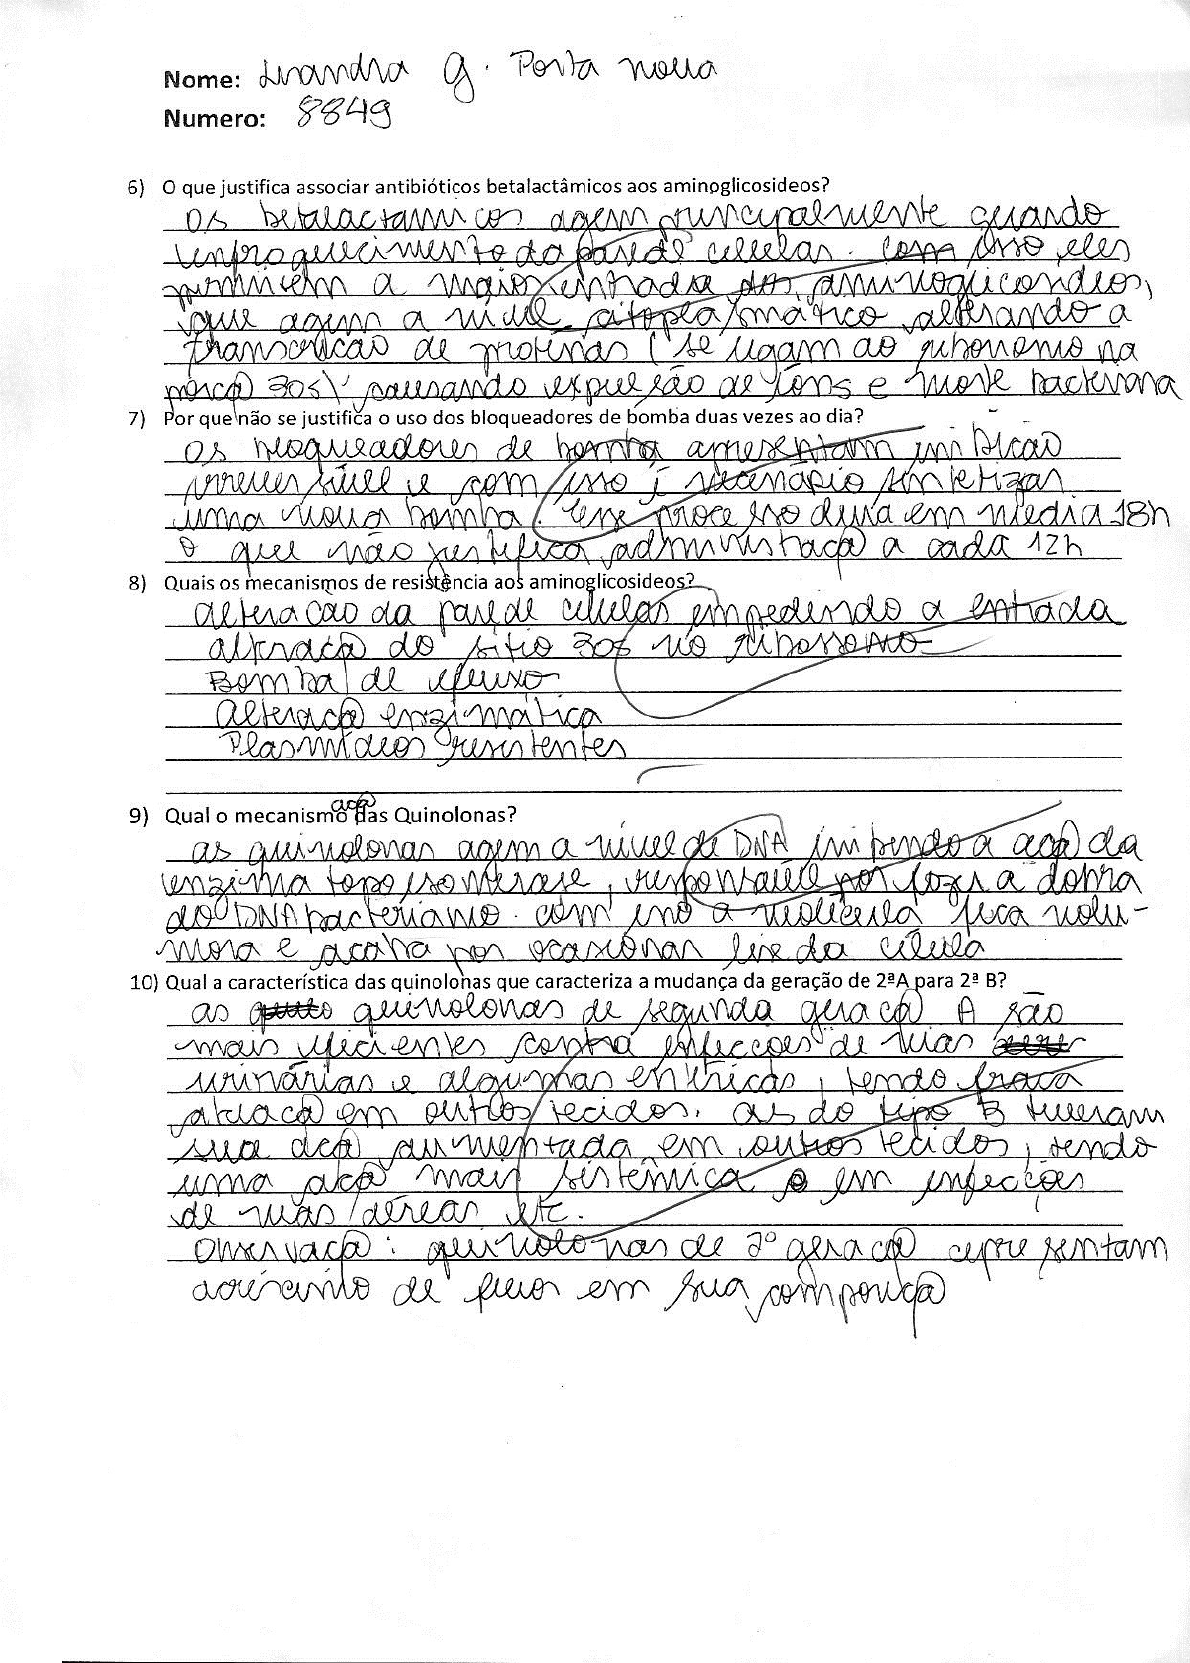 Nome: Lisandra G. Porta Nova
Numero: 8849
6) O que justifica associar antibióticos betalactâmicos aos aminoglicosideos?
Os betalactamicos agem principalmente quando
enfraquecimento da parede celular. com isso eles
permitem a maior entrada dos aminoglicosideos,
que agem a nivel citoplasmático alterando a
transcricao de proteinas (se ligam ao ribossomo na
porçaõ 30s), causando expulsão de íons e morte bacteriana
7) Por que não se justifica o uso dos bloqueadores de bomba duas vezes ao dia?
Os bloqueadores de bomba apresentam inibicão
irreversível e com isso é necessário sintetizar
uma nova bomba. Esse processo dura em média 18h
o que não justifica administraçaõ a cada 12h
8) Quais os mecanismos de resistência aos aminoglicosideos?
Alteracao da parede celular empedindo a entrada
alteraçaõ do sítio 30s no ribossomo
Bomba de efluxo
Alteraçaõ enzimática
Plasmídeos resistentes
9) Qual o mecanismo açaõ das Quinolonas?
as quinolonas agem a nivel de DNA impendo a açaõ da
enzima topoisomerase, responsavel por fazer a dobra
do DNA bacteriano. com isso a molécula fica volu-
mosa e acaba por ocasionar lise da célula
10) Qual a característica das quinolonas que caracteriza a mudança da geração de 2ªA para 2ª B?
as quinolonas de segunda geraçaõ A são
mais eficientes contra infecções de vias
urinárias e algumas entéricas, tendo fraca
atuaçaõ em outros tecidos. as do tipo B tiveram
sua açaõ aumentada em outros tecidos, sendo
uma açaõ mais sistêmica em infecções
de vias aéreas etc.
Observaçaõ: quinolonas de 2º geraçaõ apresentam
acréscimo de flúor em sua composiçaõ